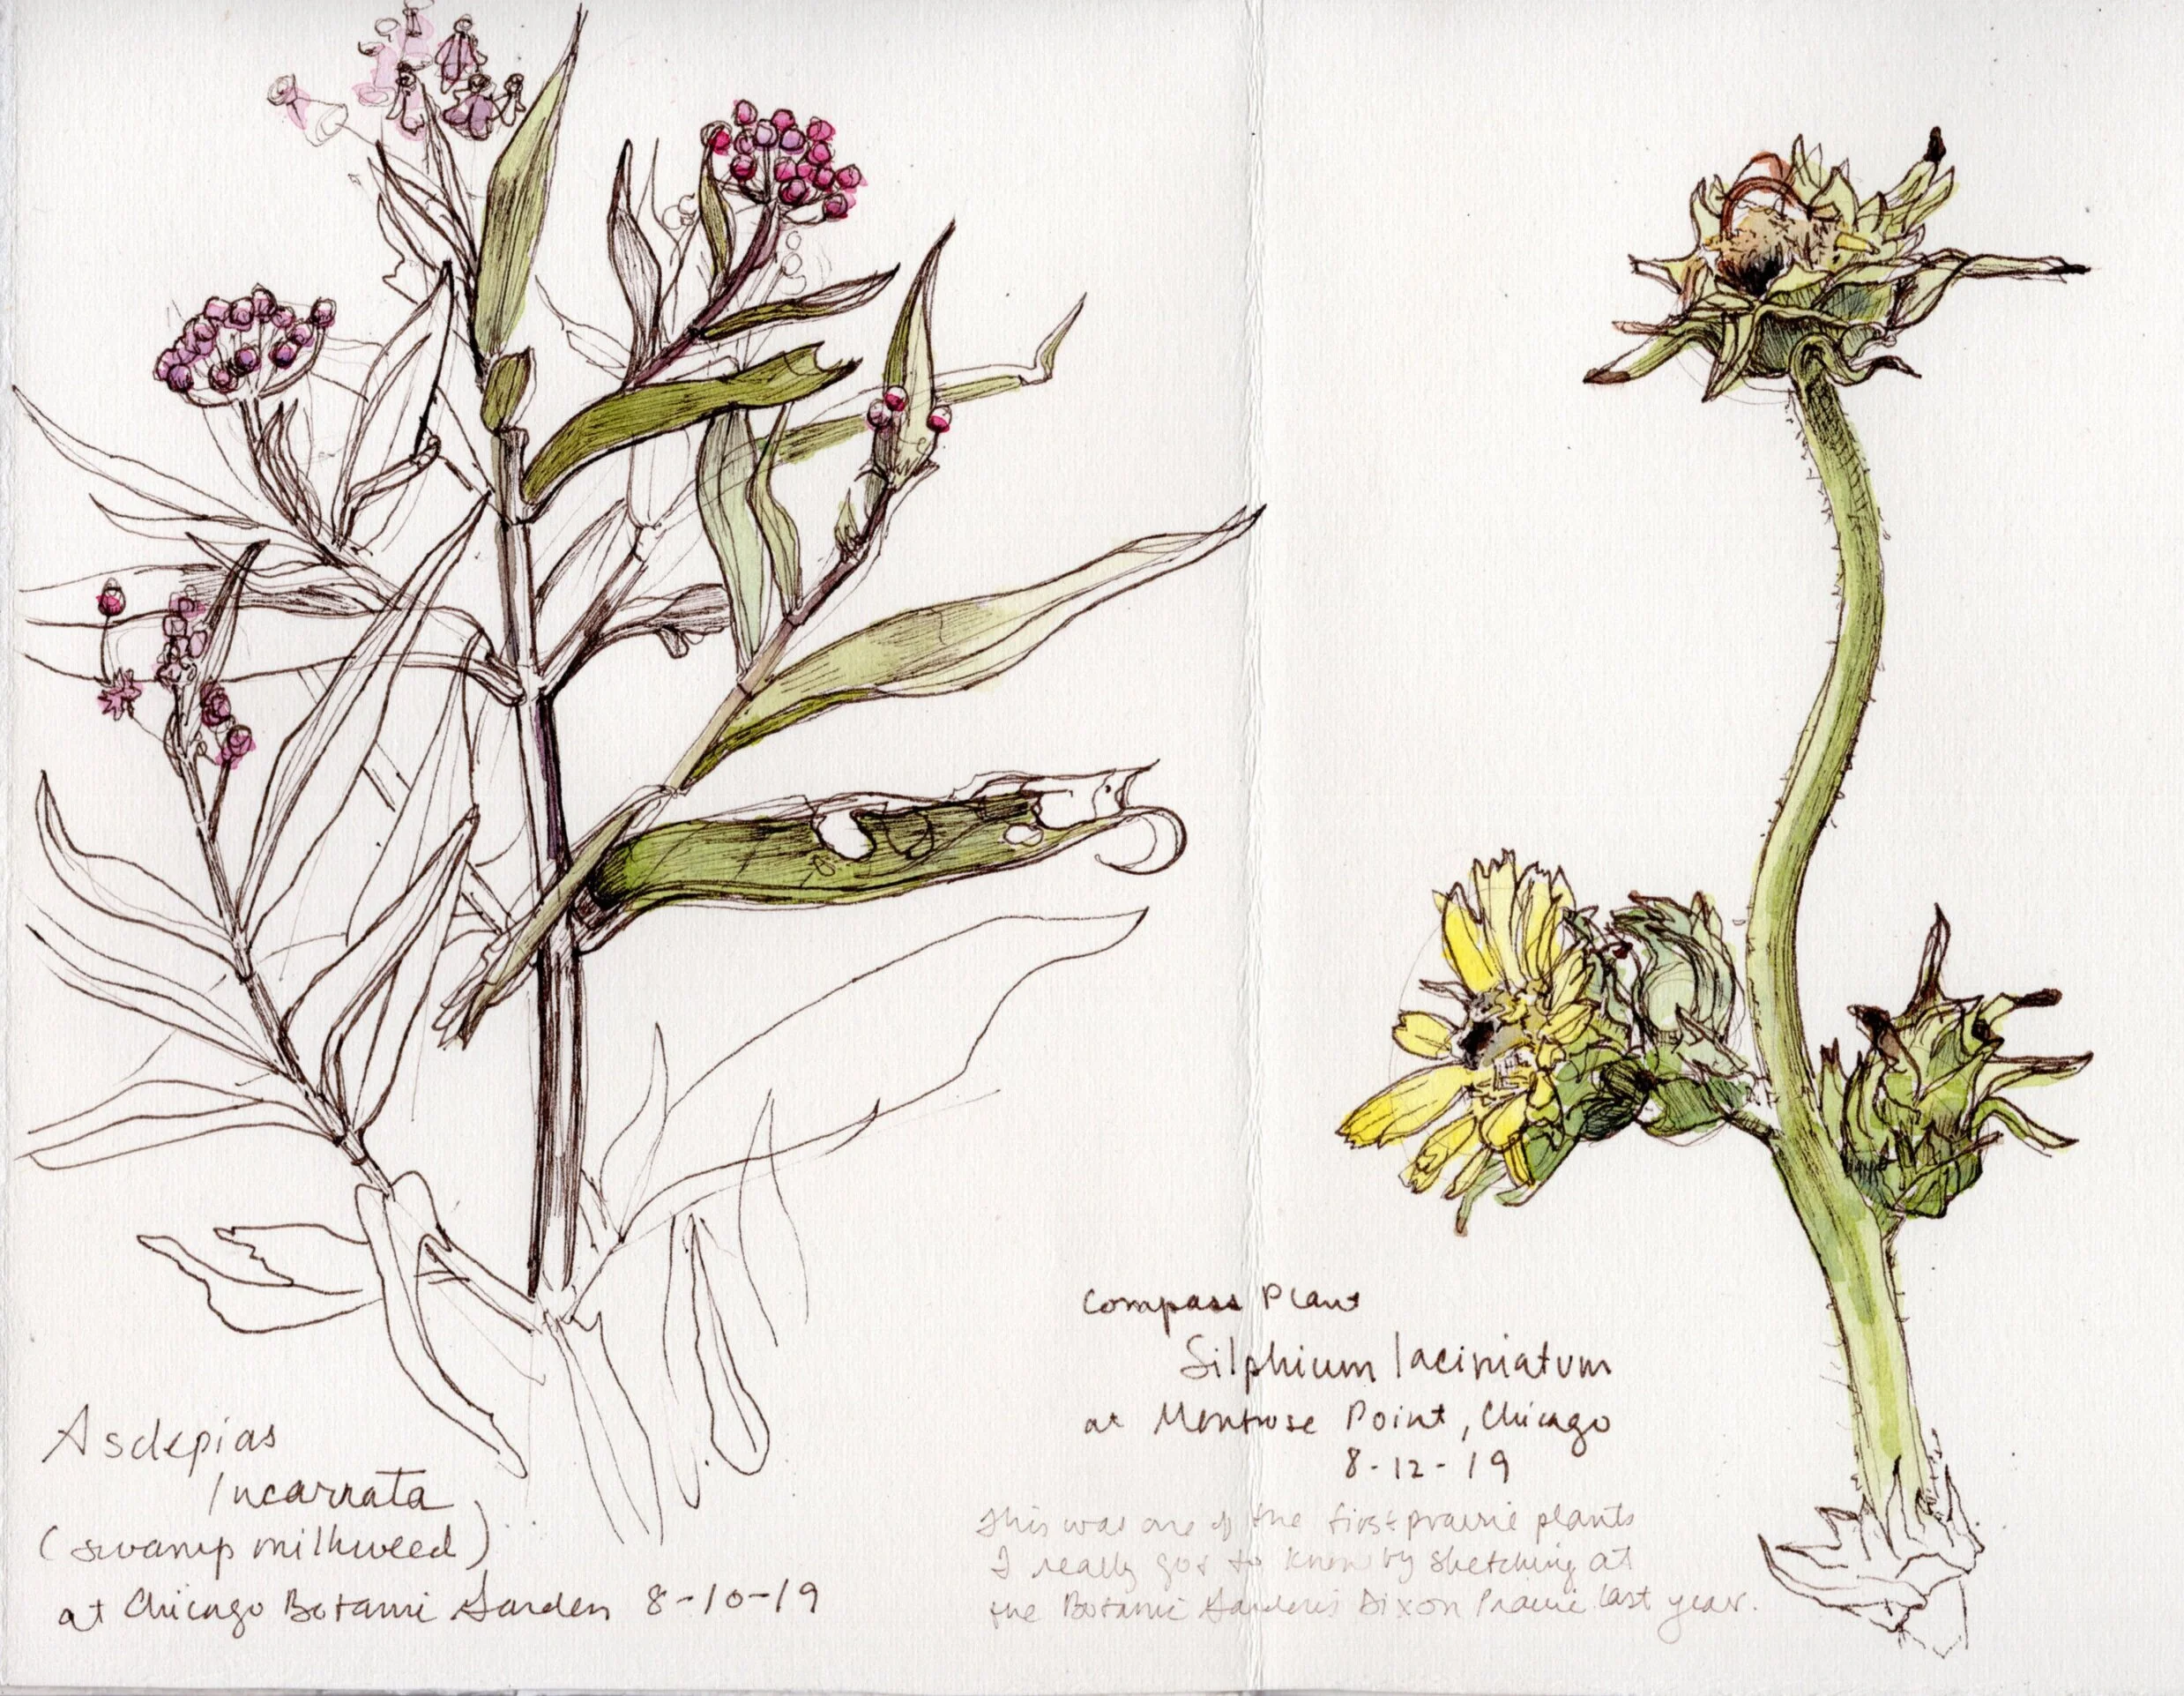 Asclepias
Incarnata
(swamp milkweed)
at Chicago Botanic Garden 8-10-19
Compass Plant
Silphium laciniatum
at Montrose Point, Chicago
8-12-19
This was one of the first prairie plants
I really got to know by sketching at
the Botanic Garden's Dixon Prairie last year.